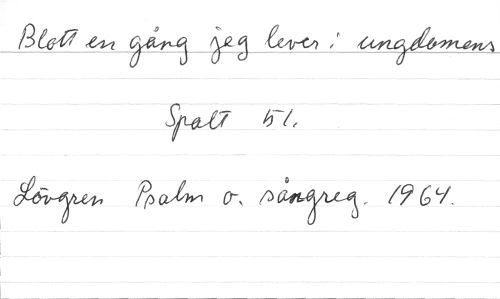 Blott en gång jeg lever i ungdomens
Spalt 51.
Lövgren Psalm o. sångreg. 1964.